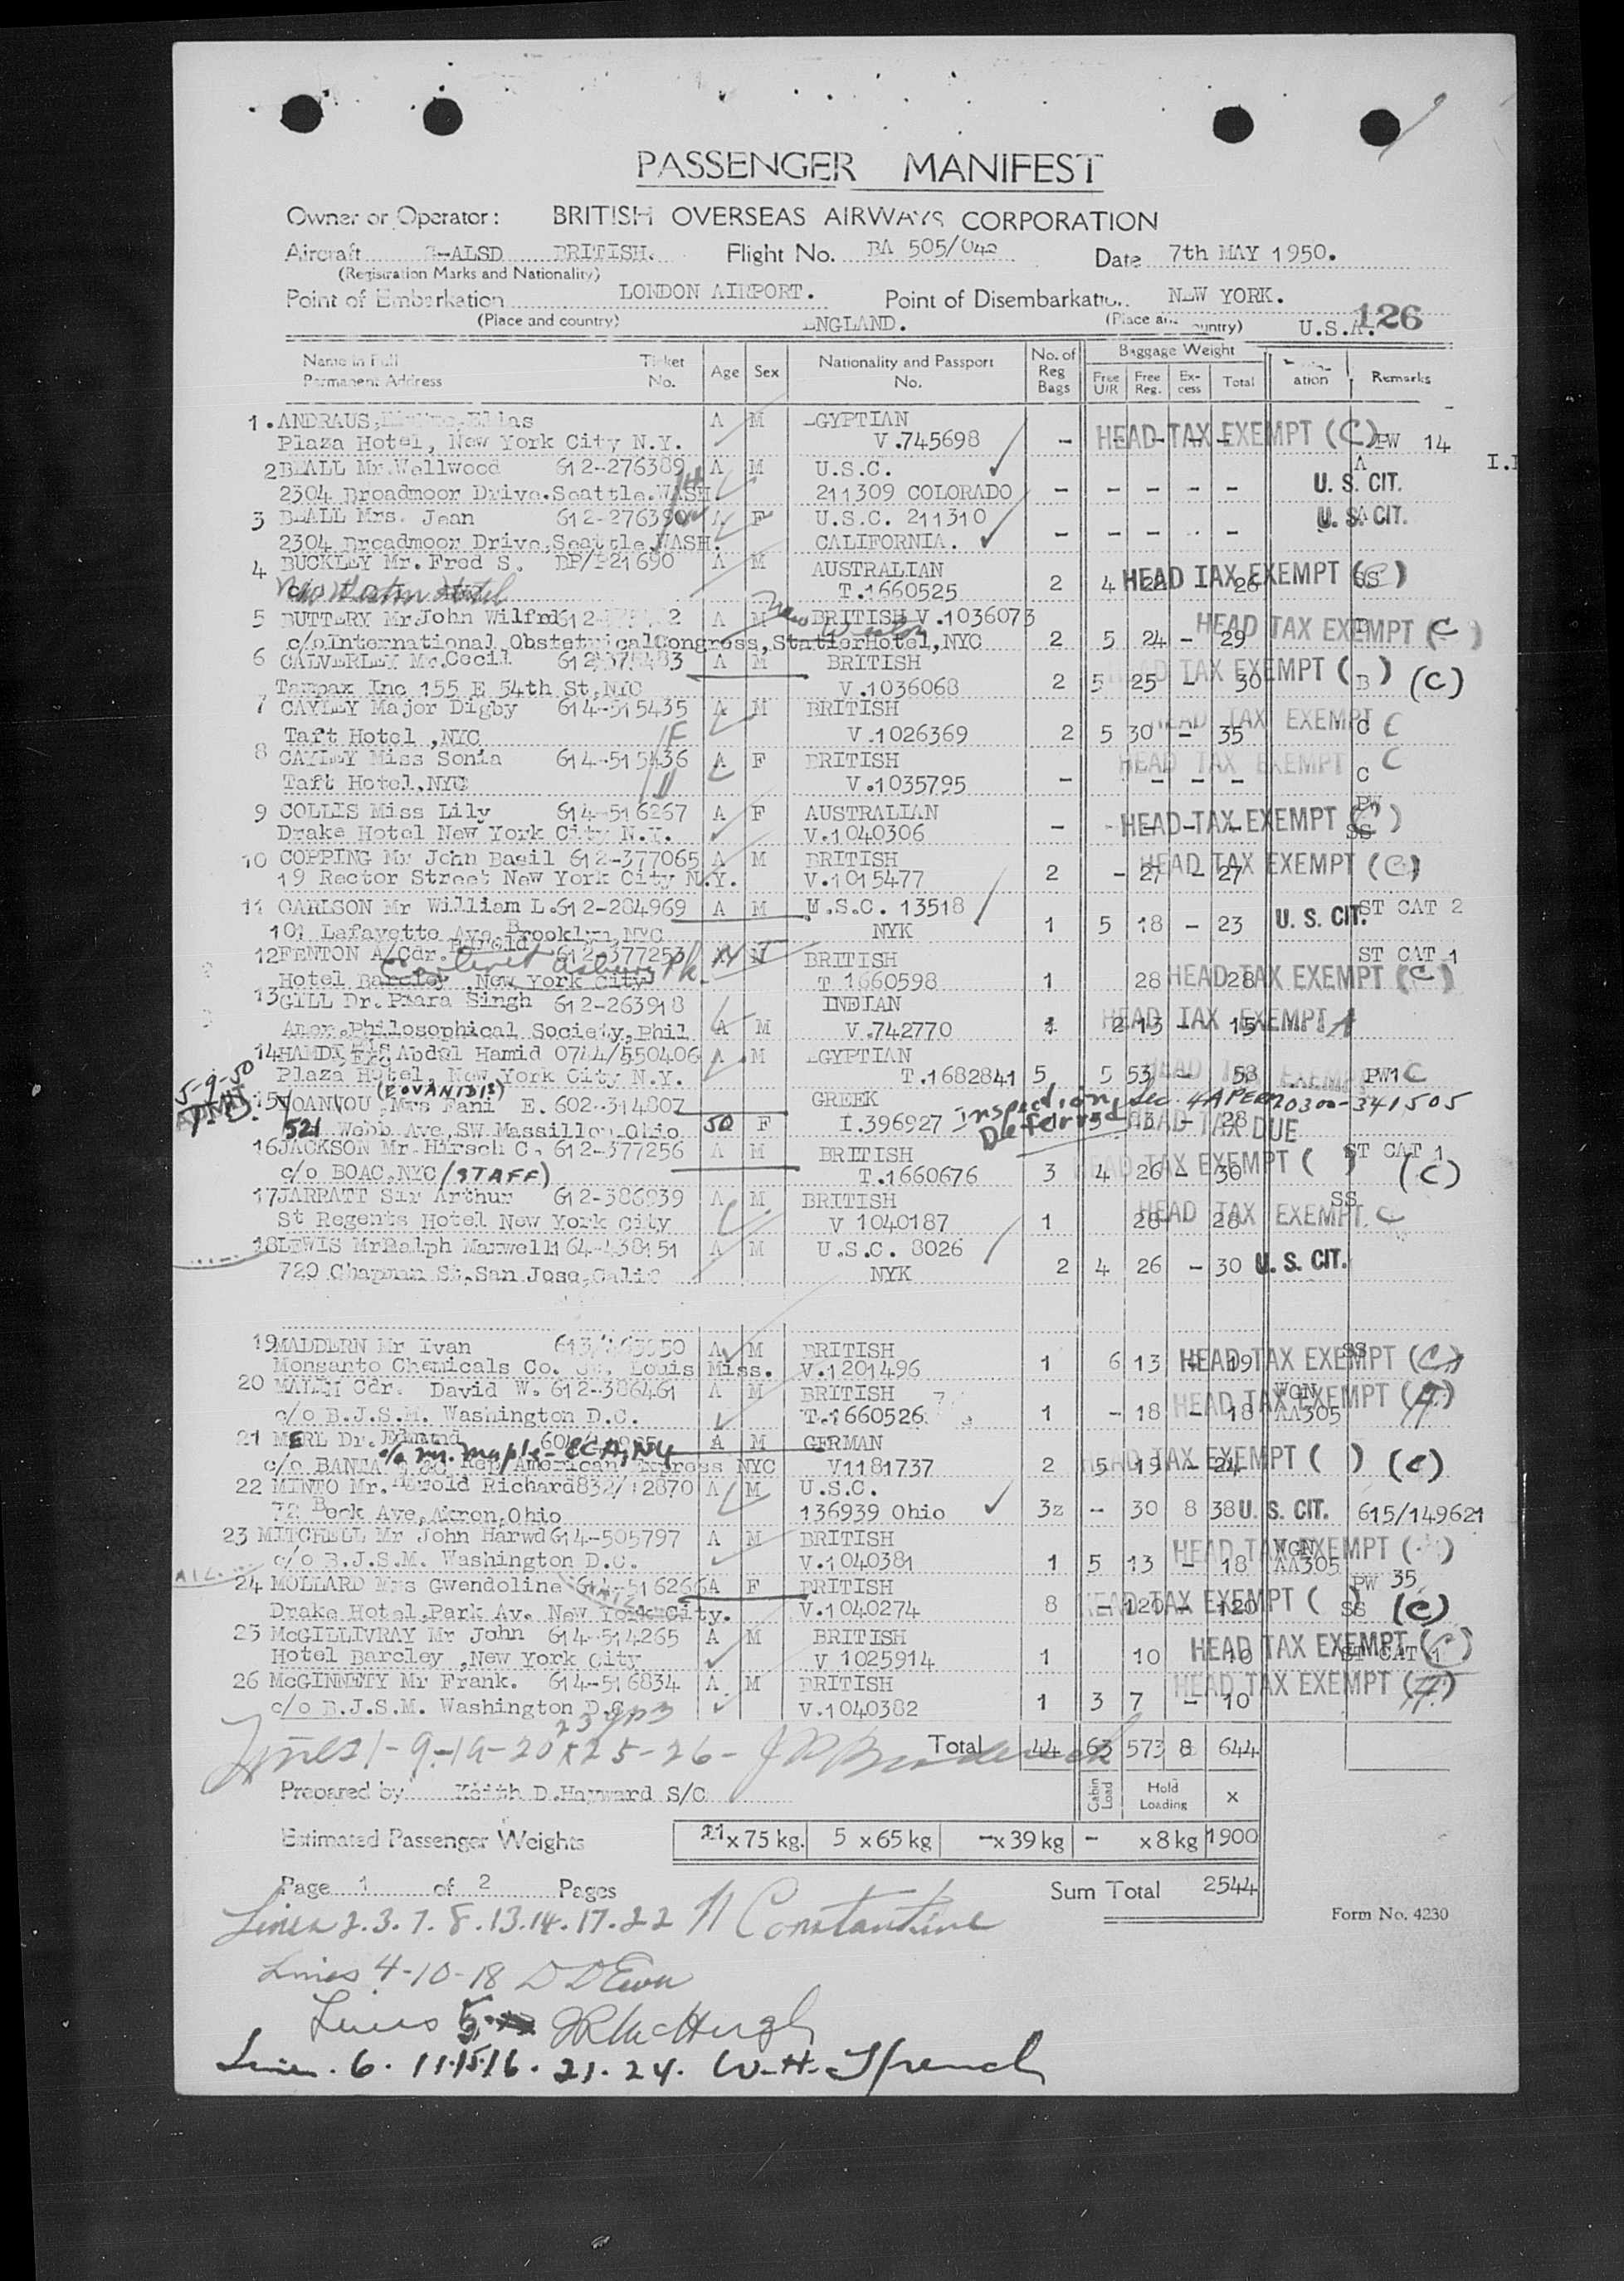 PASSENGER MANIFEST
Owner or Operator: BRITISH OVERSEAS AIRWAYS CORPORATION
Aircraft G-ALSD BRITISH. Flight No. BA 505/042 Date 7th MAY 1950.
(Registration Marks and Nationality)
Point of Embarkation LONDON AIRPORT. Point of Disembarkation NEW YORK.
(Place and country) ENGLAND. (Place and country) U.S.A. 126
Name in Full Ticket Age Sex Nationality and Passport No. of Baggage Weight
Permanent Address No. No. Reg Bags Free U/R Free Reg. Ex-cess Total ation Remarks
1. ANDRAUS, Elias A M EGYPTIAN
Plaza Hotel, New York City N.Y. V.745698 - HEAD TAX EXEMPT (C) PW 14
2 BEALL Mr.Wellwood 612-276389 A M U.S.C. A
2304 Broadmoor Drive.Seattle.WASH 211309 COLORADO - - - - - U. S. CIT.
3 BEALL Mrs. Jean 612-276390 A F U.S.C. 211310 A U. S. CIT.
2304 Broadmoor Drive.Seattle.WASH. CALIFORNIA. - - - - -
4 BUCKLEY Mr. Fred S. BP/P21690 A M AUSTRALIAN
T.1660525 2 4 26 HEAD TAX EXEMPT (C) SS
5 BUTTERY Mr John Wilfrd 612- A M BRITISH V.1036073
c/o International ObstetricalCongress,StatlerHotel,NYC 2 5 24 - 29 HEAD TAX EXEMPT (C)
6 CALVERLEY Mr.Cecil 612-375483 A M BRITISH
Tampax Inc 155 E 54th St,NYC V.1036068 2 5 25 - 30 HEAD TAX EXEMPT ( B ) (C)
7 CAYLEY Major Digby 614-515435 A M BRITISH
Taft Hotel ,NYC V.1026369 2 5 30 - 35 HEAD TAX EXEMPT C C
8 CAYLEY Miss Sonia 614-515436 A F BRITISH
Taft Hotel,NYC V.1035795 - - - - HEAD TAX EXEMPT C C
9 COLLIS Miss Lily 614-516267 A F AUSTRALIAN PW
Drake Hotel New York City N.Y. V.1040306 - - - - HEAD TAX EXEMPT (C) SS
10 COPPING Mr John Basil 612-377065 A M BRITISH
19 Rector Street New York City N.Y. V.1015477 2 - 27 - 27 HEAD TAX EXEMPT (C)
11 CARLSON Mr William L.612-284969 A M U.S.C. 13518
101 Lafayette Ave Brooklyn,NYC NYK 1 5 18 - 23 U. S. CIT. ST CAT 2
12 FENTON A/Cdr. Harold 612-377253 BRITISH ST CAT 1
Hotel Barcley ,New York City T 1660598 1 28 28 HEAD TAX EXEMPT (C)
13 GILL Dr. Piara Singh 612-263918 INDIAN
Amer.Philosophical Society,Phil A M V.742770 1 2 13 - 15 HEAD TAX EXEMPT A
14 HAMDI Abdel Hamid 0744/550406 A M EGYPTIAN
Plaza Hotel, New York City N.Y. T.1682841 5 5 53 - 58 HEAD TAX EXEMPT PW1 C
5-9-50 (EOVANIDIS)
15 YOANNOU Mrs Fani E. 602-314807 GREEK Inspection Deferred Sec. 4A 0300-341505
521 Webb Ave,SW Massillon Ohio 50 F I.396927 - 28 HEAD TAX DUE
16 JACKSON Mr.Hirsch C. 612-377256 A M BRITISH ST CAT 1
c/o BOAC,NYC (STAFF) T.1660676 3 4 26 - 30 HEAD TAX EXEMPT ( ) (C)
17 JARRATT Sir Arthur 612-386939 A M BRITISH SS
St Regents Hotel New York City V 1040187 1 28 - 28 HEAD TAX EXEMPT C
18 LEWIS MrRalph Maxwell 164-438151 A M U.S.C. 8026
720 Chapman St,San Jose,Calif NYK 2 4 26 - 30 U. S. CIT.
19 MADDERN Mr Ivan A M BRITISH SS
Monsanto Chemicals Co. St. Louis Miss. V.1201496 1 6 13 - 19 HEAD TAX EXEMPT (C)
20 Cdr. David W. 612-386461 A M BRITISH WGN
c/o B.J.S.M. Washington D.C. T.1660526 1 - 18 - 18 HEAD TAX EXEMPT (A) AA305
21 MERL Dr. Edmund A M GERMAN
c/o Mr. Maple - ECA, NY
c/o BANTA American Express NYC V1181737 2 5 19 - 24 HEAD TAX EXEMPT ( ) (C)
22 MINTO Mr. Harold Richard832/12870 A M U.S.C.
72 Beck Ave,Akron,Ohio 136939 Ohio 3z - 30 8 38 U. S. CIT. 615/149621
23 MITCHELL Mr John Harwd 614-505797 A M BRITISH WGN
c/o B.J.S.M. Washington D.C. V.1040381 1 5 13 - 18 HEAD TAX EXEMPT (A) AA305
24 MOLLARD Mrs Gwendoline 614-516266 A F BRITISH PW 35
Drake Hotel,Park Av. New York City. V.1040274 8 - 120 - 120 HEAD TAX EXEMPT ( ) SS (C)
25 McGILLIVRAY Mr John 614-514265 A M BRITISH
Hotel Barcley ,New York City V 1025914 1 10 10 HEAD TAX EXEMPT (C) ST CAT 1
26 McGINNETY Mr Frank. 614-516834 A M BRITISH
c/o B.J.S.M. Washington D.C. V.1040382 1 3 7 - 10 HEAD TAX EXEMPT (A)
Lines 1-9-19-20 & 25-26- 23 Total 44 63 573 8 644
Prepared by Keith D.Hayward S/C Cabin Load Hold Loading x
Estimated Passenger Weights 21 x 75 kg. 5 x 65 kg - x 39 kg - x 8 kg 1900
Page 1 of 2 Pages Sum Total 2544
Form No. 4230
Lines 2.3.7.8.13.14.17.22 N Constantine
Lines 4-10-18
Lines 5 McHugh
Lines. 6. 11.15.16. 21. 24. W.H. French